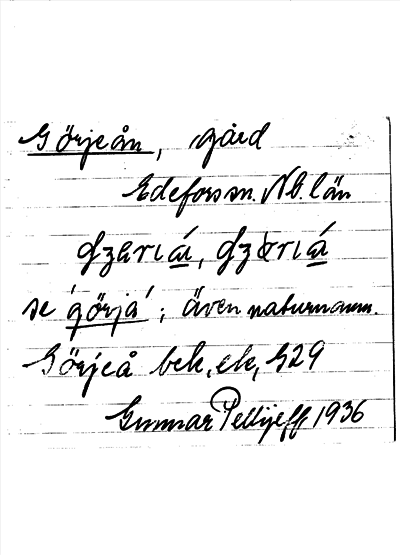 Görjeån, gård
Edefors sn. Nb. län
se görjå; även naturnamn.
Görjeå bek, ek, 329
Gunnar Pellijeff 1936